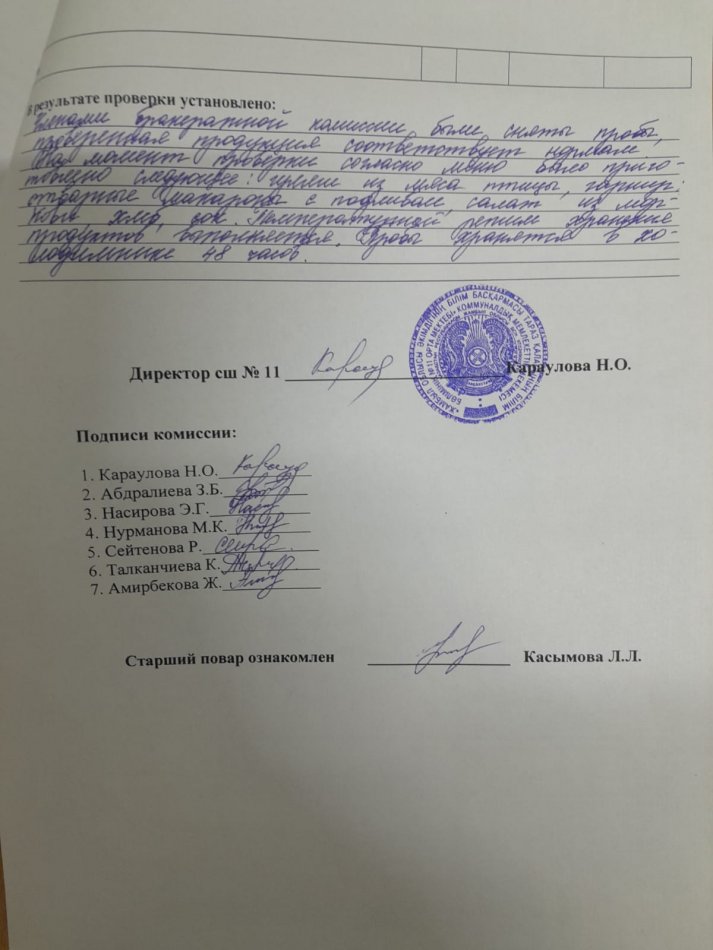 в результате проверки установлено:
Членами бракеражной комиссии были сняты пробы,
проверенная продукция соответствует нормам.
На момент проверки согласно меню было приго-
товлено следующее: гуляш из мяса птицы, гарнир:
отварные макароны с подливой, салат из мор-
кови, хлеб, сок. Температурный режим хранения
продуктов выполняется. Пробы хранятся в хо-
лодильнике 48 часов.
Директор сш № 11 Караулова Н.О.
Подписи комиссии:
1. Караулова Н.О.
2. Абдралиева З.Б.
3. Насирова Э.Г.
4. Нурманова М.К.
5. Сейтенова Р.
6. Талканчиева К.
7. Амирбекова Ж.
Старший повар ознакомлен Касымова Л.Л.